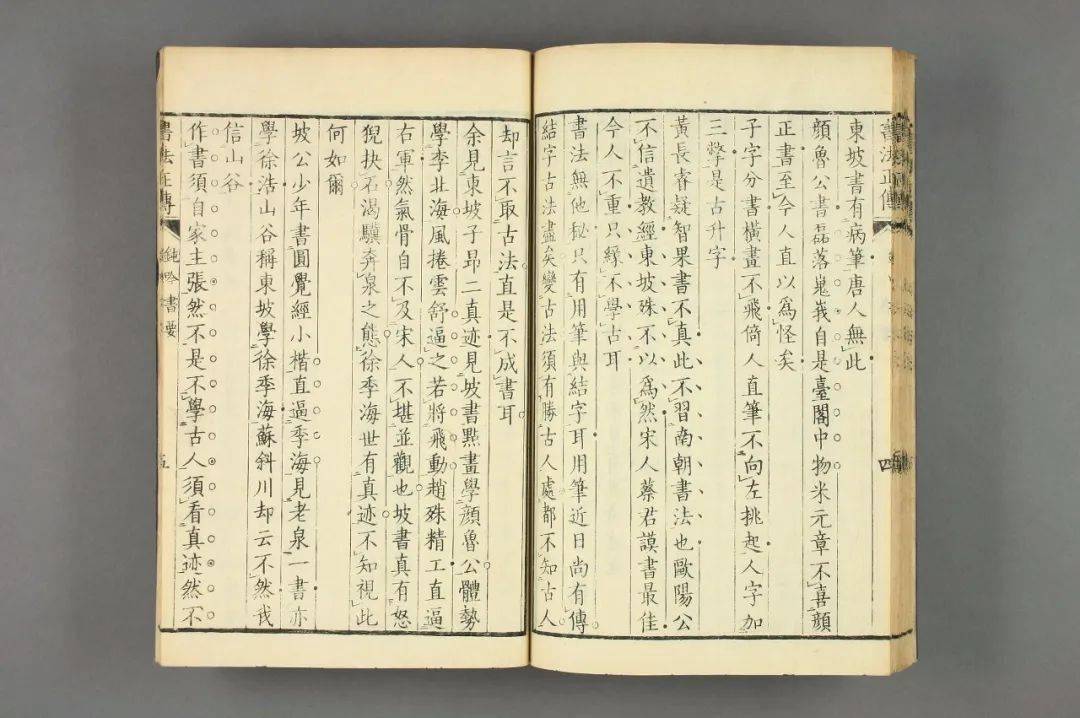 書法正傳
四
東坡書有病筆唐人無此
顔魯公書磊落嵬峩自是臺閣中物米元章不喜顔
正書至今人直以爲怪矣
子字分書橫畫不飛倚人直筆不向左挑起人字加
三撆是古升字
黃長睿疑智果書不真此不習南朝書法也歐陽公
不信遺教經東坡殊不以爲然宋人蔡君謨書最佳
今人不重只緣不學古耳
書法無他秘只有用筆與結字耳用筆近日尚有傳
結字古法盡矣變古法須有勝古人處都不知古人
却言不取古法直是不成書耳
余見東坡子昂二真迹見坡書點畫學顔魯公體勢
學李北海風捲雲舒逼之若將飛動趙殊精工直逼
右軍然氣骨自不及宋人不堪並觀也坡書真有怒
猊抉石渴驥奔泉之態徐季海世有真迹不知視此
何如爾
坡公少年書圓覺經小楷直逼季海見老泉一書亦
學徐浩山谷稱東坡學徐季海蘇斜川却云不然我
信山谷
作書須自家主張然不是不學古人須看真迹然不
書法正傳
鈍吟書要
五